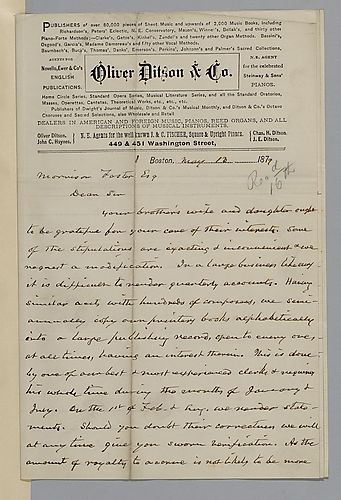 PUBLISHERS of over 50,000 pieces of Sheet Music and upwards of 2,000 Music Books, including
Richardson's, Peters' Eclectic, N. E. Conservatory, Mason's, Winner's, Bellak's, and thirty other
Piano-Forte Methods;—Clarke's, Getze's, Kinkel's, Zundel's and twenty other Organ Methods; Bassini's,
Osgood's, Garcia's, Madame Damoreau's and fifty other Vocal Methods.
Baumbach's, Buck's, Thomas', Danks', Emerson's, Perkins', Johnson's and Palmer's Sacred Collections,
AGENTS FOR
Novello, Ewer & Co's
ENGLISH
PUBLICATIONS.
Oliver Ditson & Co.
N. E. AGENT
for the celebrated
Steinway & Sons'
PIANOS.
Home Circle Series, Standard Opera Series, Musical Literature Series, and all the Standard Oratorios,
Masses, Operettas, Cantatas, Theoretical Works, etc., etc., etc.
Publishers of Dwight's Journal of Music, Ditson & Co's Musical Monthly, and Ditson & Co.'s Octavo
Choruses and Sacred Selections, also Wholesale and Retail
DEALERS IN AMERICAN AND FOREIGN MUSIC, PIANOS, REED ORGANS, AND ALL
DESCRIPTIONS OF MUSICAL INSTRUMENTS.
Oliver Ditson,
John C. Haynes.
N. E. Agents for the well known J. & C. FISCHER, Square & Upright Pianos.
449 & 451 Washington Street,
Chas. H. Ditson,
J. E. Ditson.
Boston, May 12 1879
Rec'd
16th
Morrison Foster Esq
Dear Sir
Your brother's wife and daughter ought
to be grateful for your care of their interests. Some
of the stipulations are exacting & inconvenient & we
request a modification. In a large business like ours
it is difficult to render quarterly accounts. Having
similar acts, with hundreds of composers, we semi-
annually copy our printery books alphabetically
into a large publishing record, open to every one,
at all times, having an interest therein. This is done
by one of our best & most experienced clerks & requires
his whole time during the months of January &
July. On the 1st of Feb. & Aug. we render state-
ments. Should you doubt their correctness we will
at any time give you sworn verification. As the
amount of royalty to accrue is not likely to be more